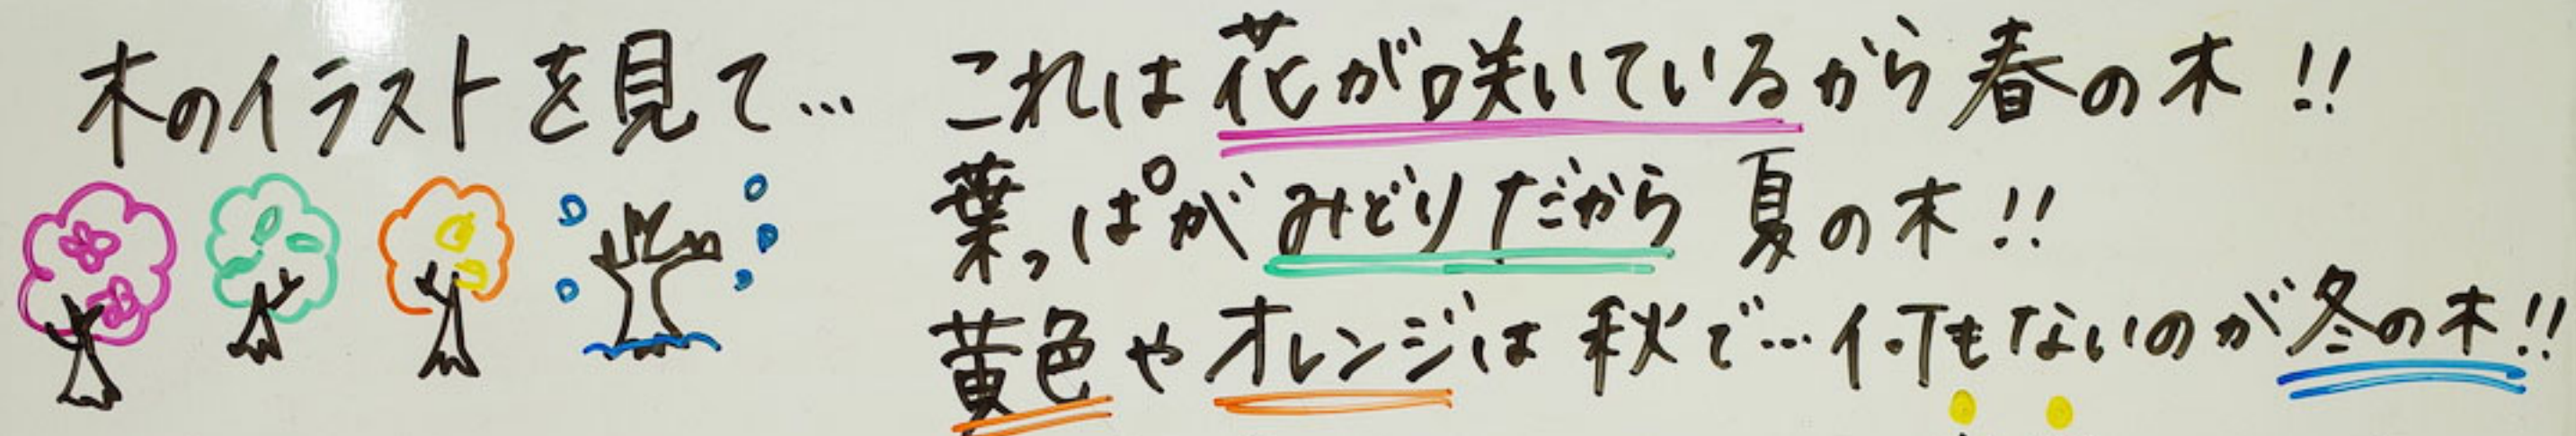 木のイラストを見て…
これは花が咲いているから春の木!!
葉っぱがみどりだから夏の木!!
黄色やオレンジは秋で…何もないのが冬の木!!